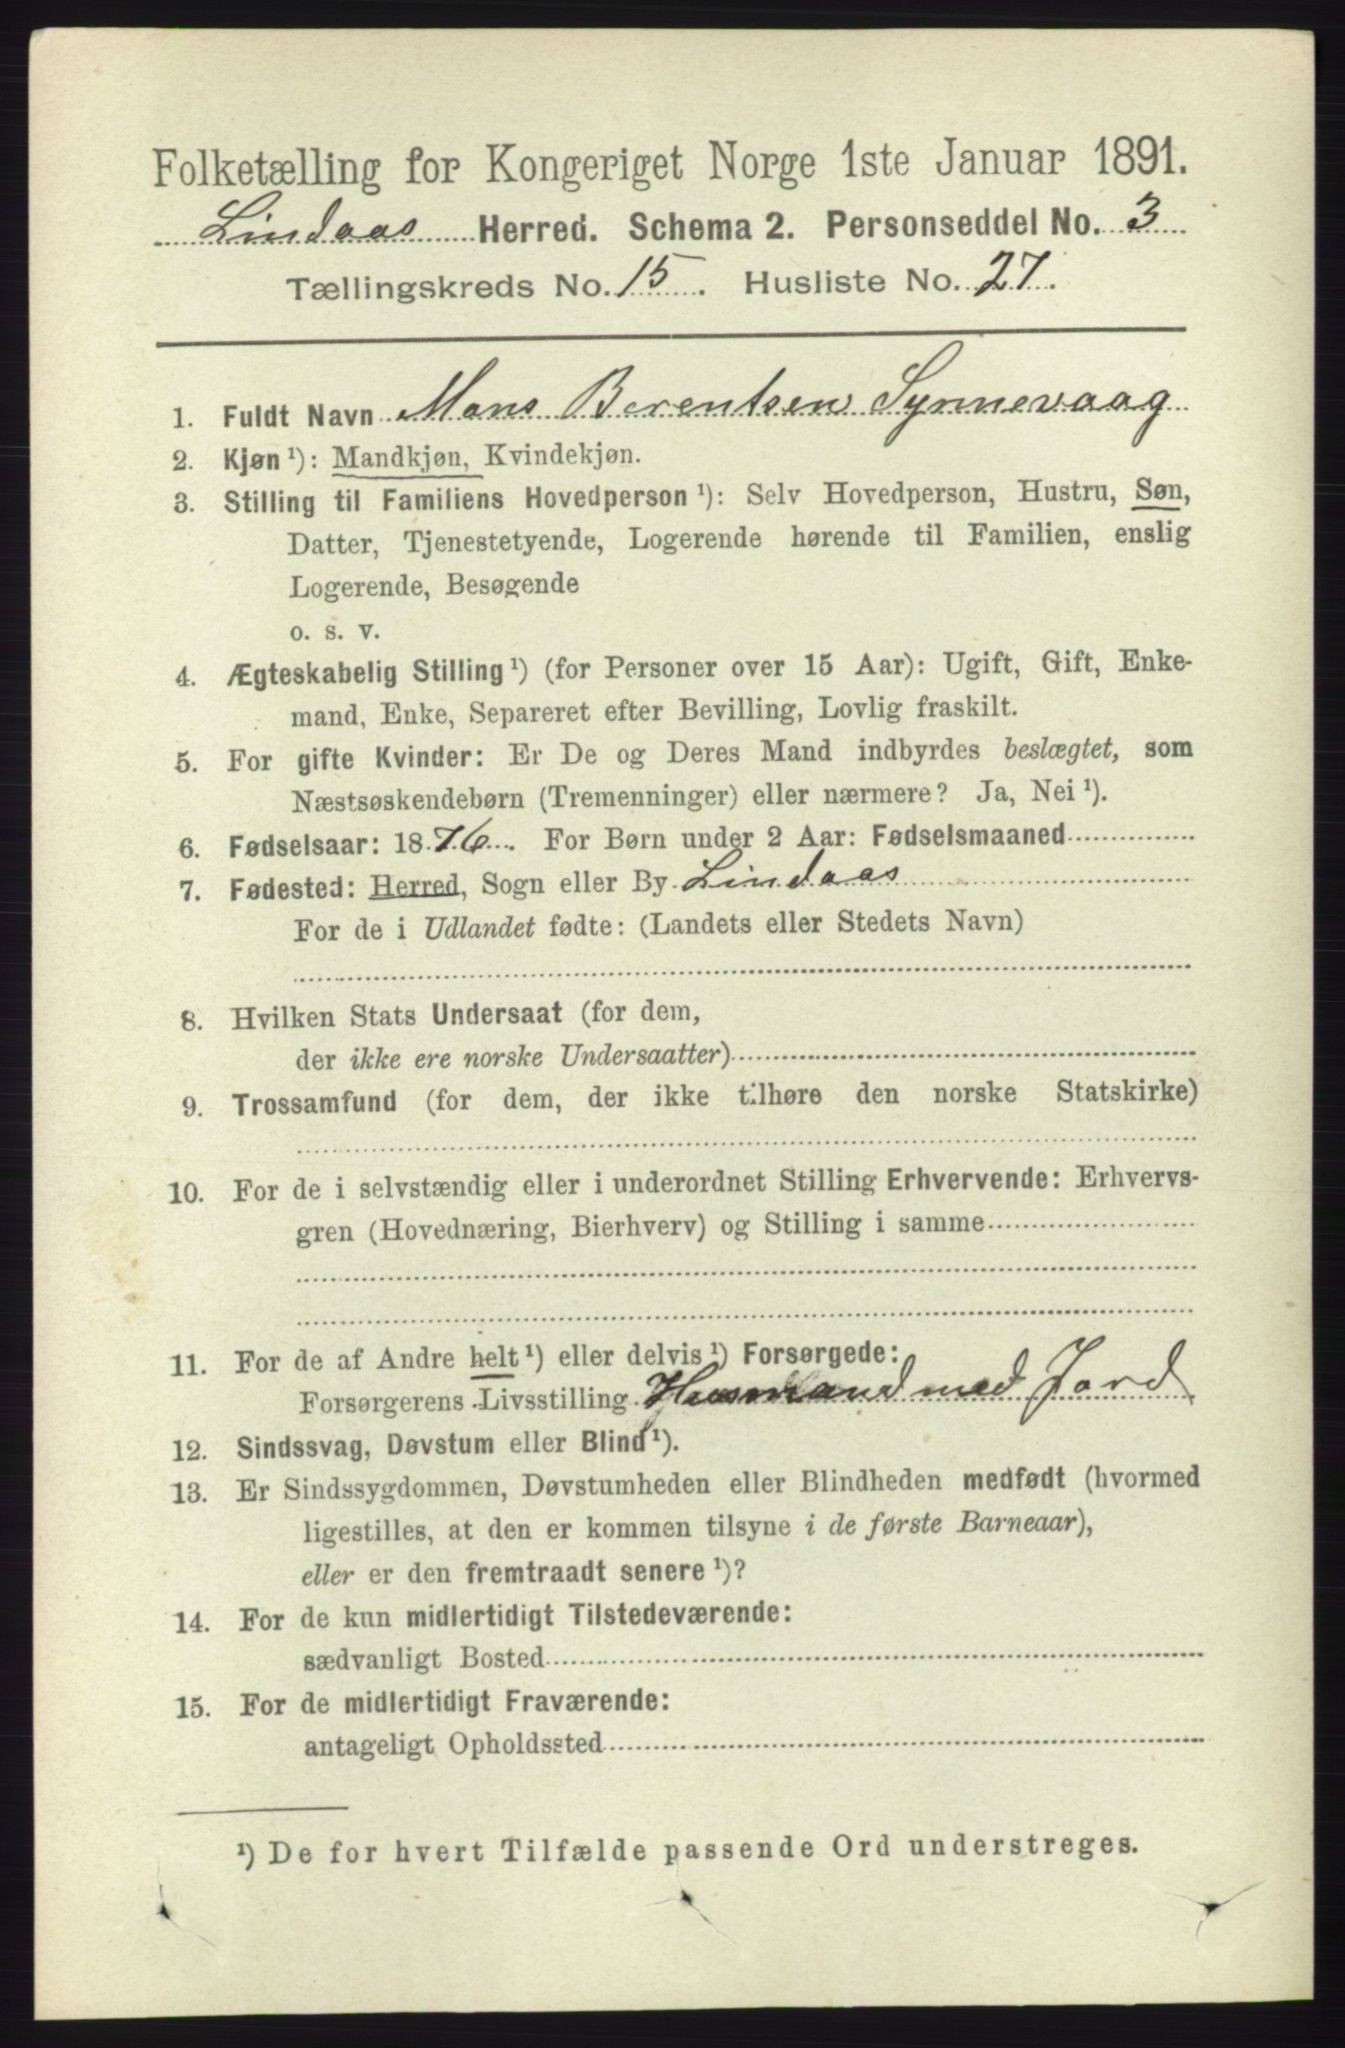 Folketælling for Kongeriget Norge 1ste Januar 1891.
Lindaas Herred. Schema 2. Personseddel No. 3
Tællingskreds No. 15. Husliste No. 27.
1. Fuldt Navn Mons Berentsen Synnevaag
2. Kjøn ¹): Mandkjøn, Kvindekjøn.
3. Stilling til Familiens Hovedperson ¹): Selv Hovedperson, Hustru, Søn,
Datter, Tjenestetyende, Logerende hørende til Familien, enslig
Logerende, Besøgende
o. s. v.
4. Ægteskabelig Stilling ¹) (for Personer over 15 Aar): Ugift, Gift, Enke-
mand, Enke, Separeret efter Bevilling, Lovlig fraskilt.
5. For gifte Kvinder: Er De og Deres Mand indbyrdes beslægtet, som
Næstsøskendebørn (Tremenninger) eller nærmere? Ja, Nei ¹).
6. Fødselsaar: 1876. For Børn under 2 Aar: Fødselsmaaned
7. Fødested: Herred, Sogn eller By Lindaas
For de i Udlandet fødte: (Landets eller Stedets Navn)
8. Hvilken Stats Undersaat (for dem,
der ikke ere norske Undersaatter)
9. Trossamfund (for dem, der ikke tilhøre den norske Statskirke)
10. For de i selvstændig eller i underordnet Stilling Erhvervende: Erhvervs-
gren (Hovednæring, Bierhverv) og Stilling i samme
11. For de af Andre helt ¹) eller delvis ¹) Forsørgede:
Forsørgerens Livsstilling Husmand med Jord
12. Sindssvag, Døvstum eller Blind ¹).
13. Er Sindssygdommen, Døvstumheden eller Blindheden medfødt (hvormed
ligestilles, at den er kommen tilsyne i de første Barneaar),
eller er den fremtraadt senere ¹)?
14. For de kun midlertidigt Tilstedeværende:
sædvanligt Bosted
15. For de midlertidigt Fraværende:
antageligt Opholdssted
¹) De for hvert Tilfælde passende Ord understreges.